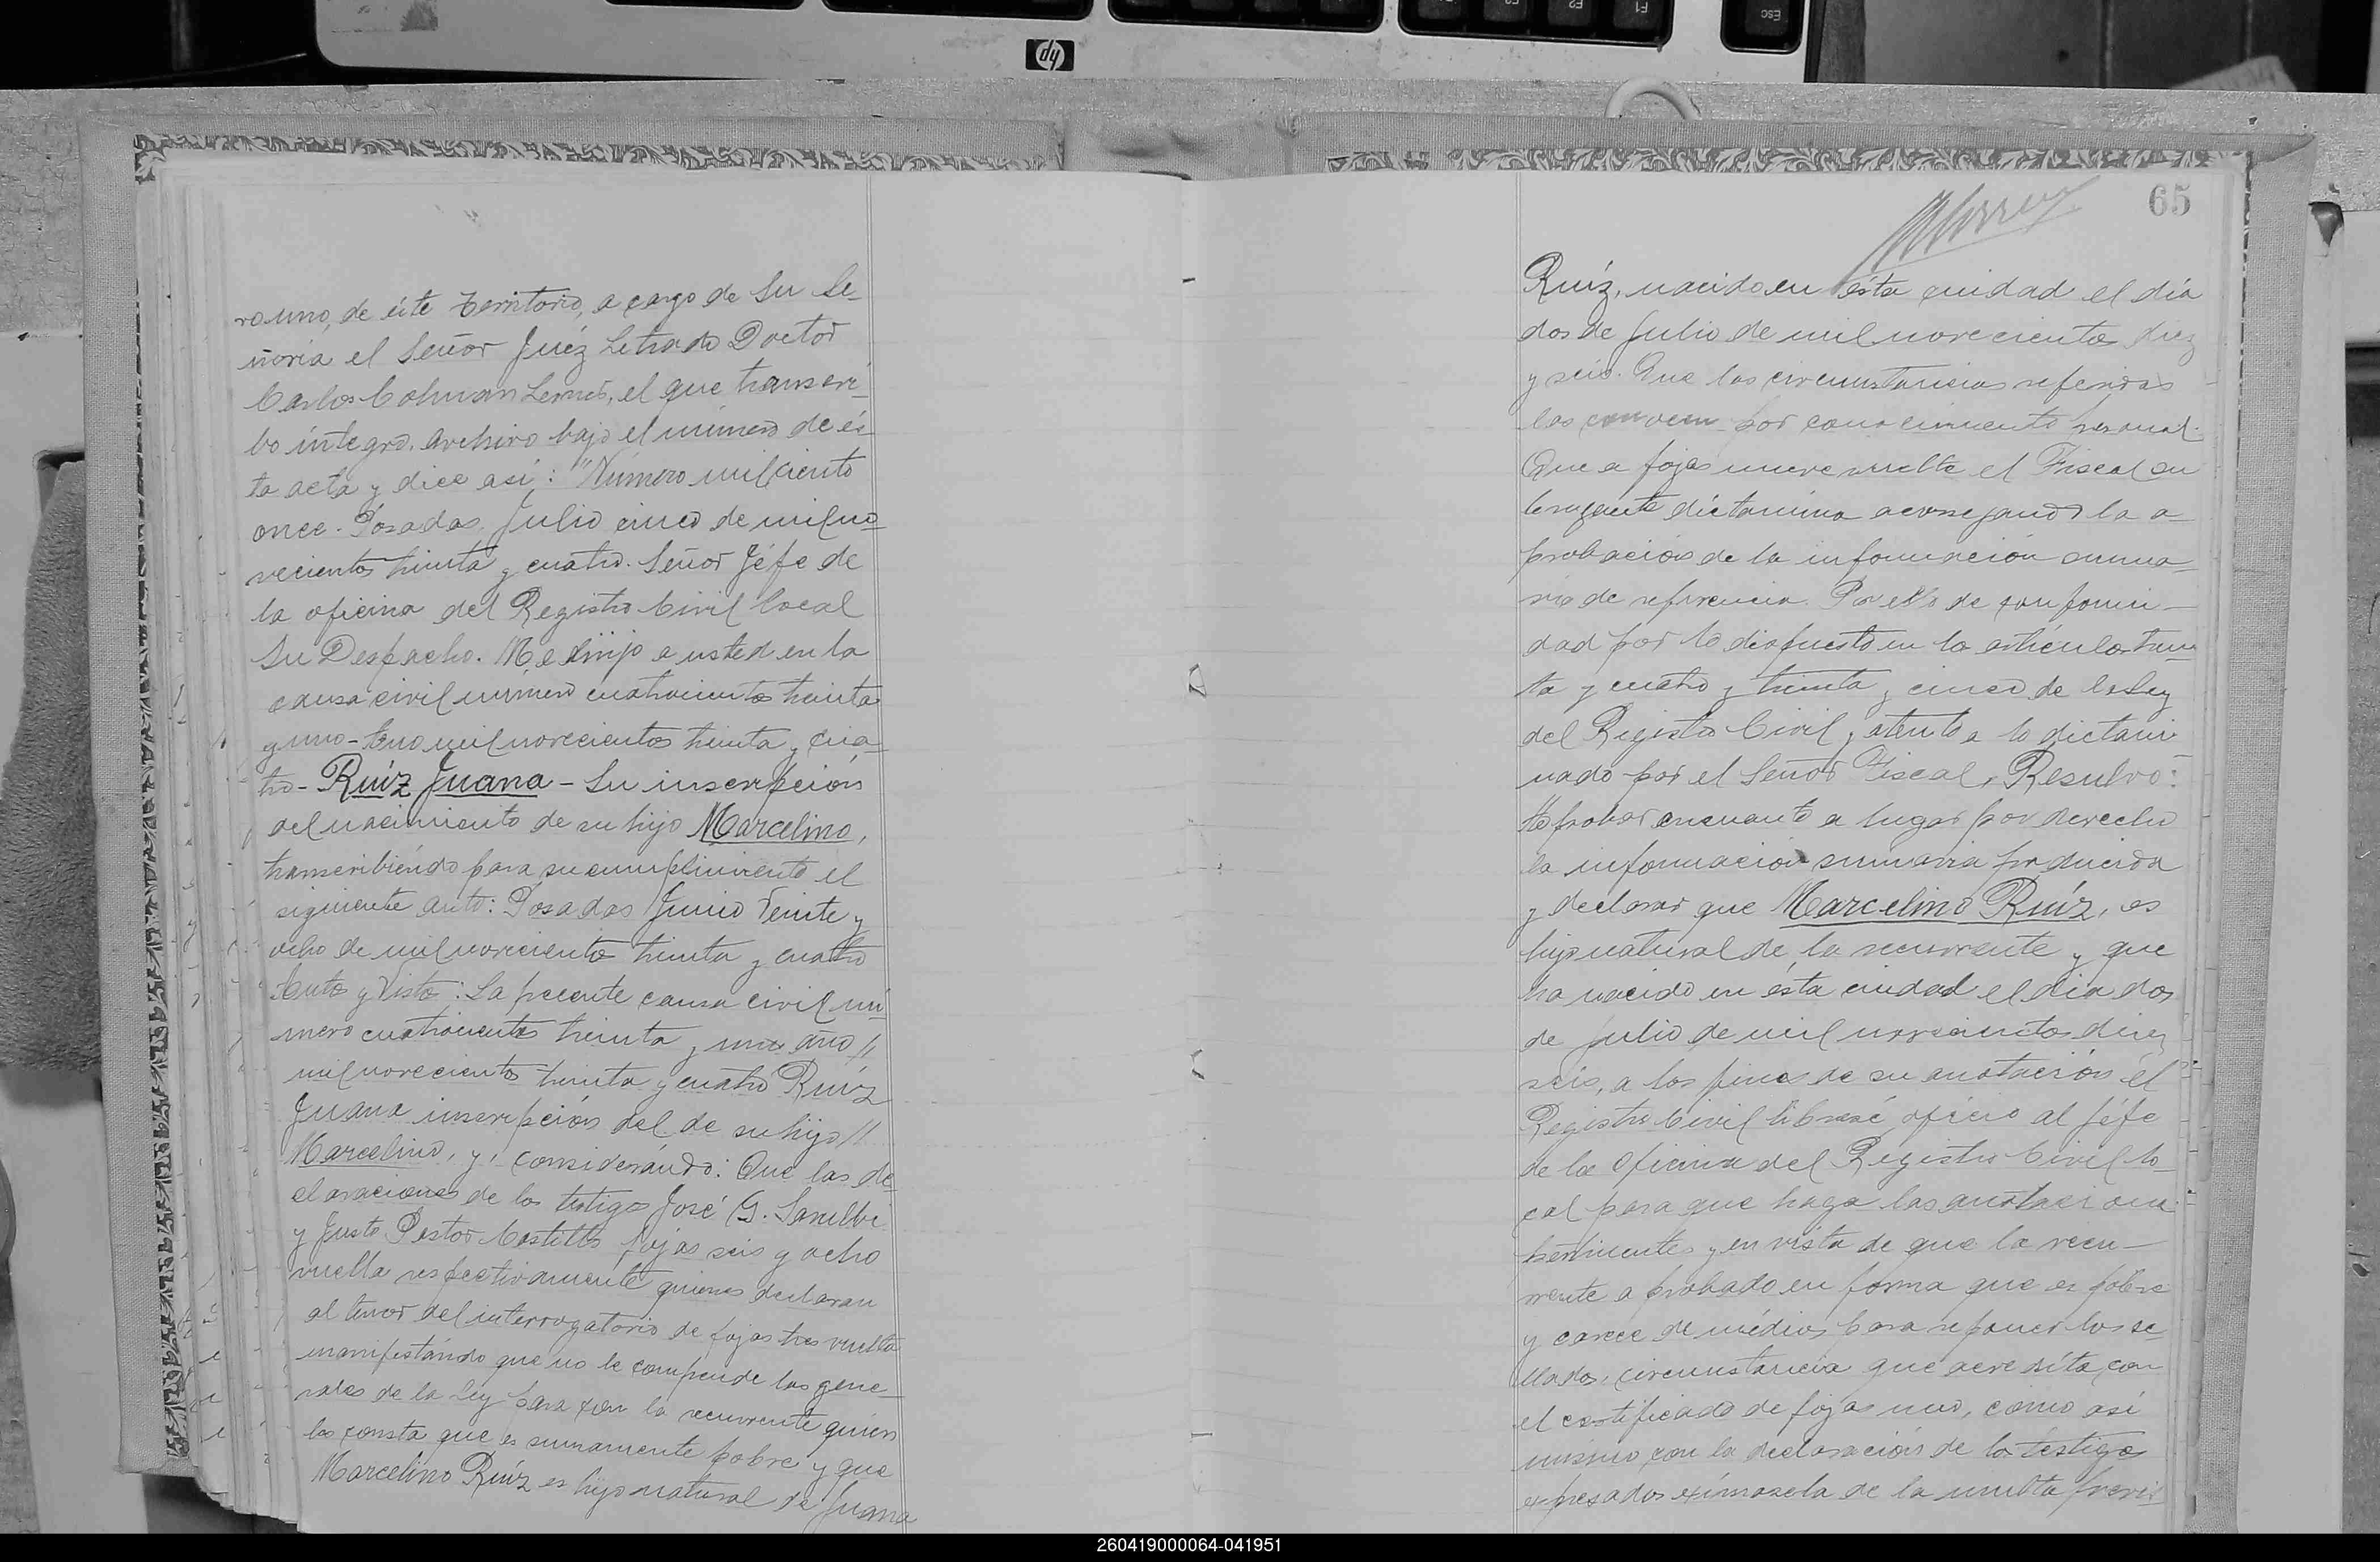 hp
Esc
F1
F2
65
ro uno, de éste Territorio, a cargo de Su Se-
ñoria el Señor Juéz Letrado Doctor
Carlos Colman Lerner, el que transcri-
bo íntegro, archivo bajo el número de és-
ta acta y dice así: "Número mil ciento
once. Posadas, Julio cinco de mil no-
vecientos treinta y cuatro. Señor Jéfe de
la oficina del Registro Civil local
Su Despacho. Me dirijo a usted en la
causa civil número cuatrocientos treinta
y uno - mil novecientos treinta y cua-
tro - Ruíz Juana - Su inscripción
del nacimiento de su hijo Marcelino,
transcribiéndo para su cumplimiento el
siguiente auto: Posadas Junio Veinte y
ocho de mil novecientos treinta y cuatro
Autos y Vistos: La presente causa civil nú-
mero cuatrocientos treinta y uno año //
mil novecientos treinta y cuatro Ruíz
Juana inscripción del de su hijo //
Marcelino, y, considerándo: Que las de-
claraciones de los testigos José G.
y Justo Pastor Castillo fojas seis y ocho
vuelta respectivamente quienes declaran
al tenor del interrogatorio de fojas tres vuelta
manifestándo que no le comprende las gene-
rales de la Ley para con la recurrente quien
les consta que es sumamente pobre y que
Marcelino Ruíz es hijo natural de Juana
Ruíz, nacido en ésta ciudad el día
dos de Julio de mil novecientos diez
y seis. Que las circunstancias referidas
las conocen por conocimiento personal.
Que a fojas nueve vuelta el Fiscal en
dictamina aconsejando la a-
probación de la información suma-
ria de referencia. Por ello de conformi-
dad por lo dispuesto en lo artículos trein-
ta y cuatro y treinta y cinco de la Ley
del Registro Civil y atento a lo dictami-
nado por el Señor Fiscal, Resuelvo:
Aprobar encuanto a lugar por derecho
la informacion sumaria producida
y declarar que Marcelino Ruíz, es
hijo natural de la recurrente y que
ha nacido en ésta ciudad el día dos
de Julio de mil novecientos diez
seis, a los fines de su anotación él
Registro Civil líbrese oficio al jéfe
de la Oficina del Registro Civil lo-
cal para que haga las anotaciones
pertinentes y en vista de que la recu-
rrente a probado en forma que es pobre
y carece de médios para reponer los se-
llados, circunstancia que acredita con
el certificado de fojas uno, como así
mismo con la declaración de los testigos
expresados exímasela de la multa previs-
260419000064-041951